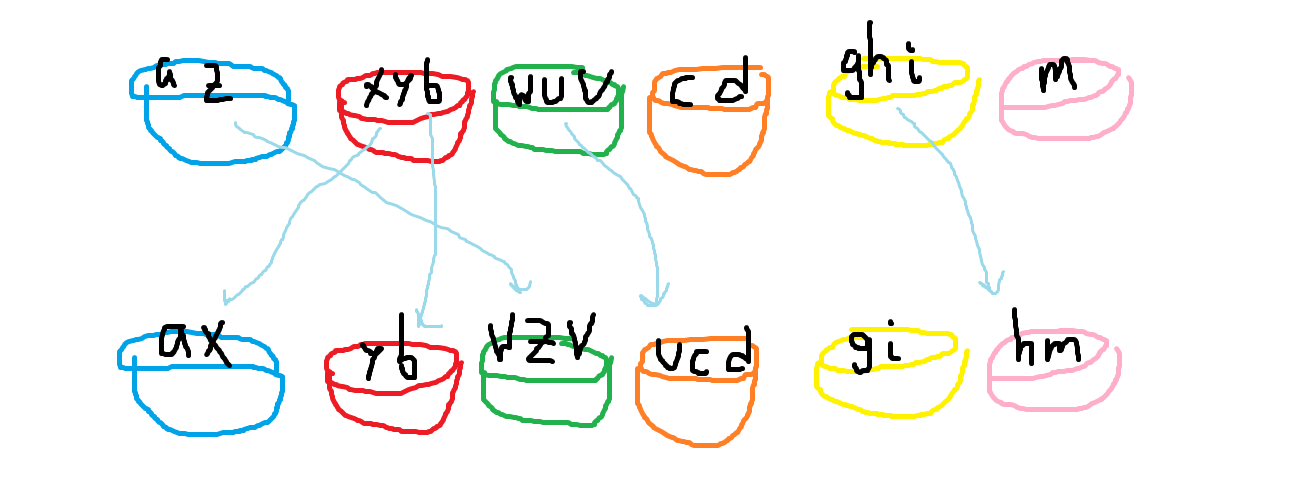 a z xyb wuv cd ghi m
ax yb wzv ucd gi hm